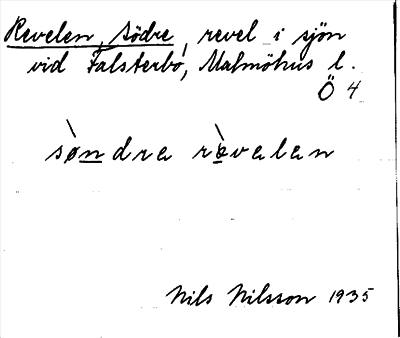 Revelen, Södre, revel i sjön
vid Falsterbo, Malmöhus l.
Ö 4
søndra rèvelan
Nils Nilsson 1935